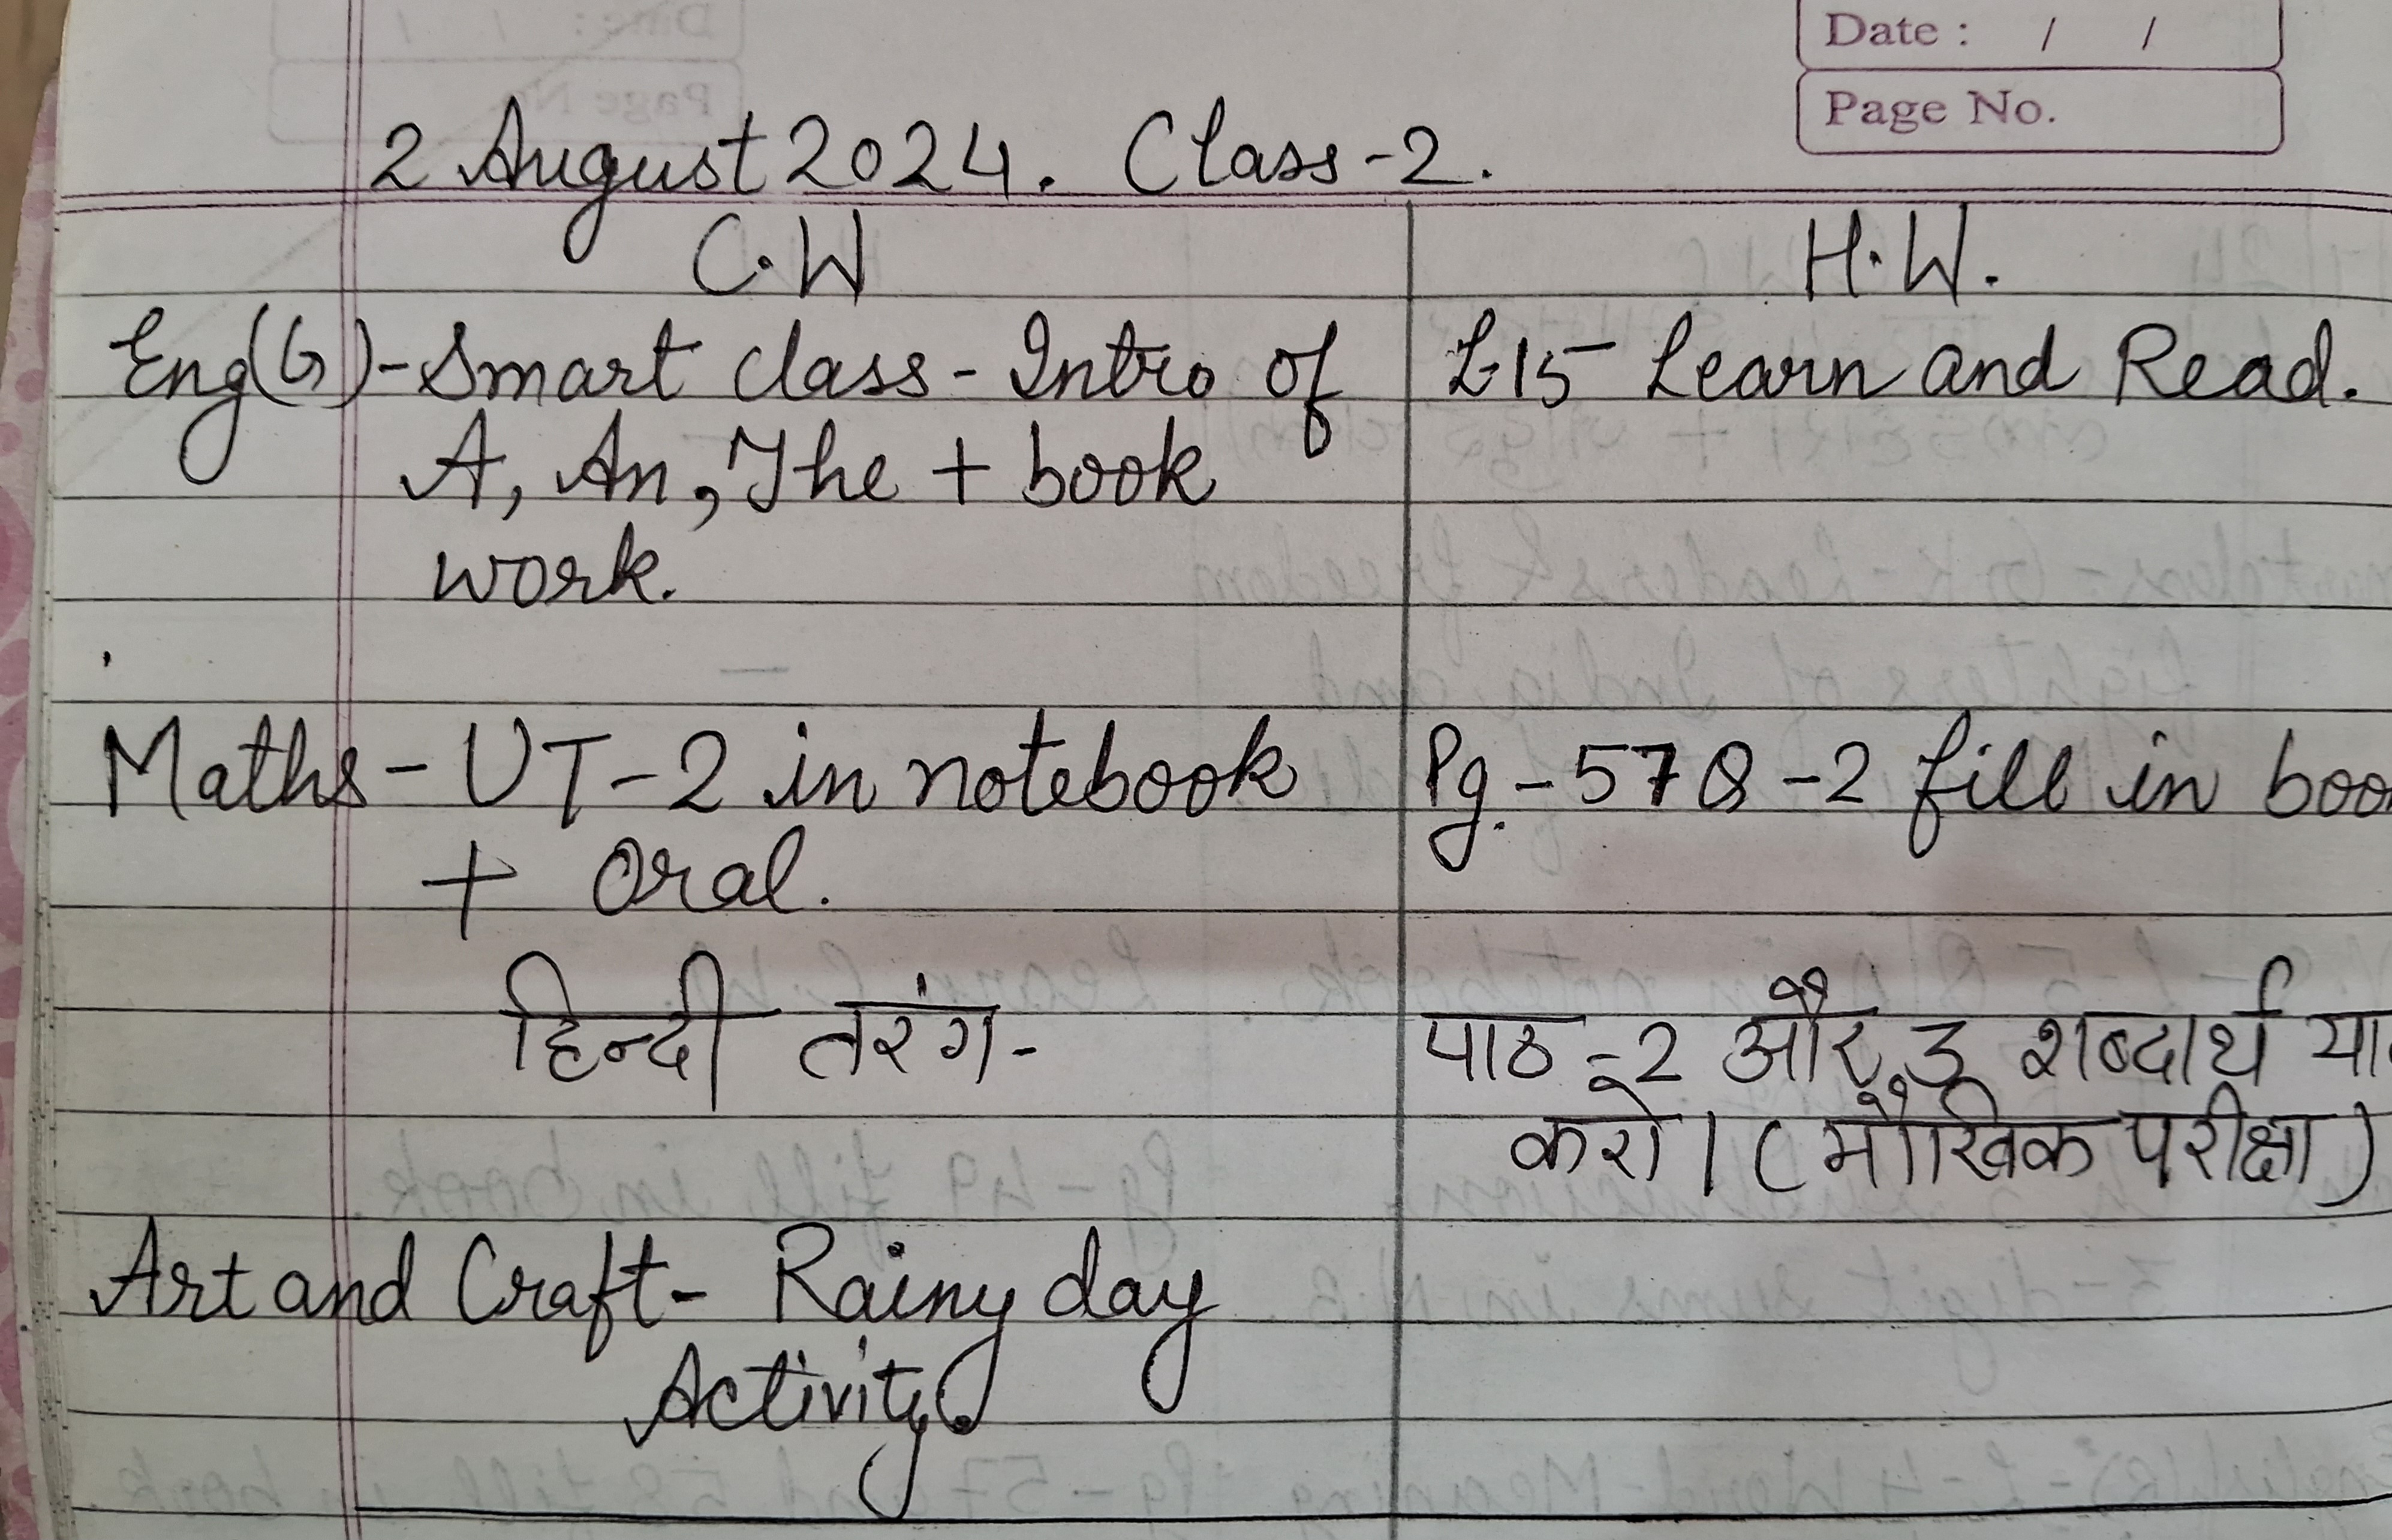 Date : / /
Page No.
2 August 2024. Class-2.
C.W
H.W.
Eng(G)-Smart class-Intro of
A, An, The + book
work.
L-15 Learn and Read.
Maths-UT-2 in notebook
+ Oral.
Pg.-57 Q-2 fill in boo
हिन्दी तरंग-
पाठ-2 और 3 शब्दार्थ या
करो। (मौखिक परीक्षा)
Art and Craft- Rainy day
Activity.